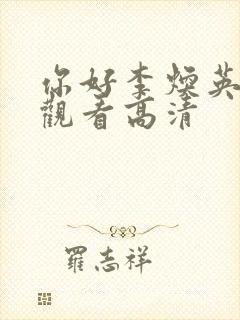 你好李煥英
觀看高清
羅志祥